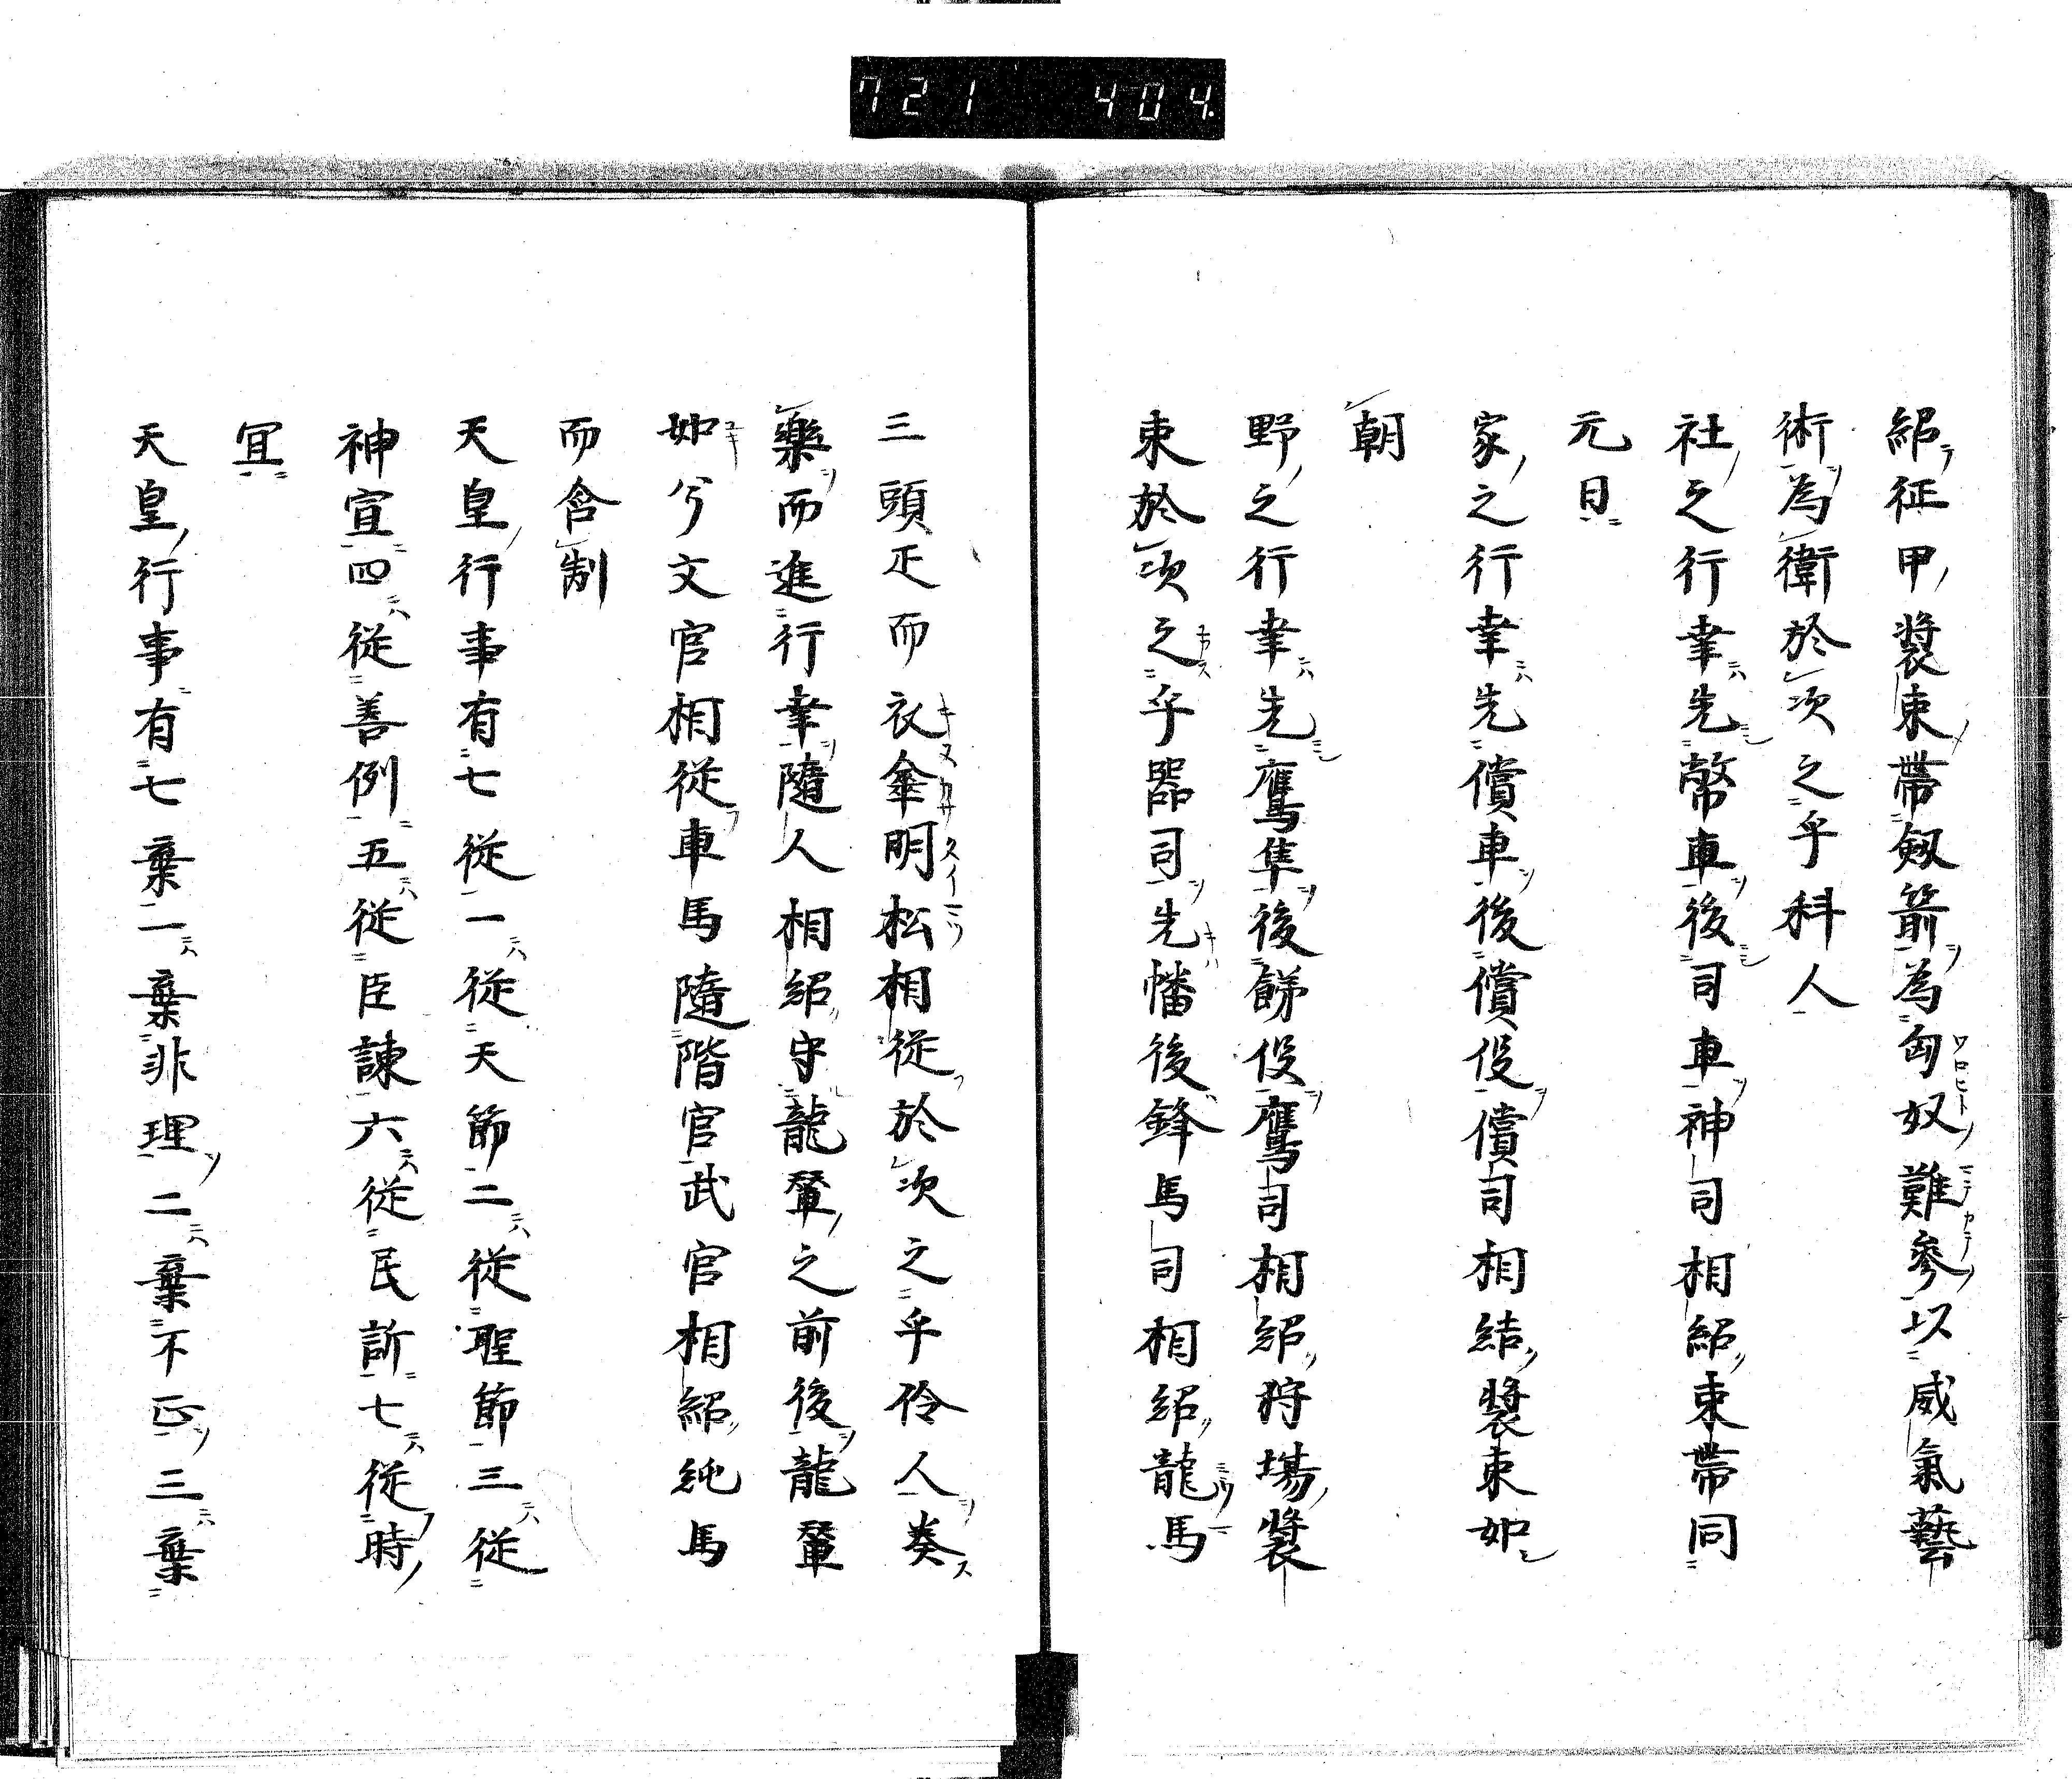 721 404
紹征甲裝束帶劔箭為匈奴難參以威氣藝
術為衛於次之乎科人
社之行幸先幣車後司車神司相紹束帶同
元日
家之行幸先償車後償役償司相結裝束如
朝
野之行幸先鷹隼後餙役鷹司相紹狩場裝
束於次之乎器司先幡後鋒馬司相紹龍馬
三頭疋而衣傘明松相從於次之乎伶人奏
樂而進行幸隨人相紹守龍輦之前後龍輦
如兮文官相從車馬隨階官武官相紹純馬
而含制
天皇行事有七從一從天節二從聖節三從
神宣四從善例五從臣諫六從民訴七從時
冝
天皇行事有七棄一棄非理二棄不正三棄